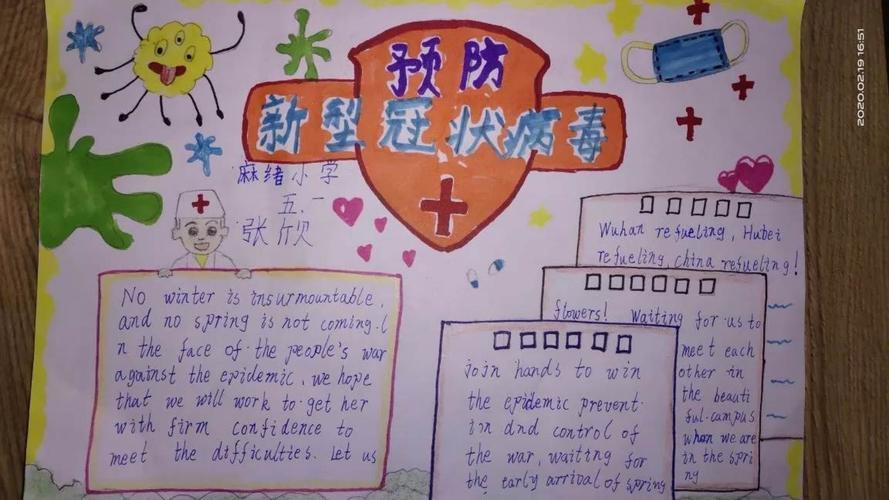 预防
新型冠状病毒
麻绪小学
五.一
张欣
2020.02.19 16:51
No winter is insurmountable,
and no spring is not coming.l
n the face of the people's war
against the epidemic, we hope
that we will work to get her
with firm confidence to
meet the difficulties. Let us
join hands to win
the epidemic prevent
ion and control of
the war, waiting for
the early arrival of spring
flowers! Waiting for us to
meet each
other in
the beauti
ful campus
when we are
in the spri
ng
Wuhan refueling, Hubei
refueling, china refueling!